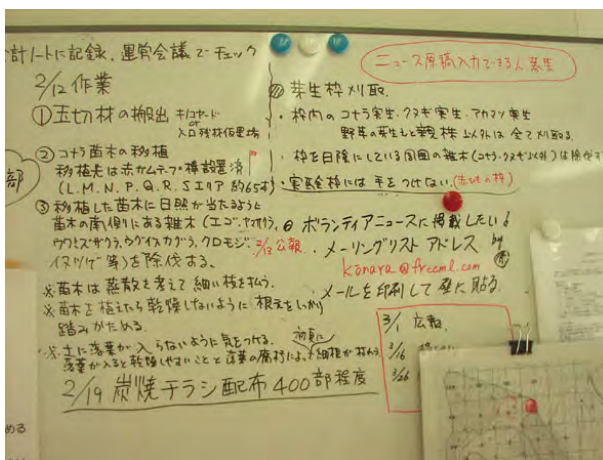 計ノートに記録、運営会議でチェック
2/12 作業
①玉切材の搬出 キノコヤード
or
入口残材仮置場
②コナラ苗木の移植
移植先は赤カムテープ棒設置済
(L.M.N.P.Q.R.Sエリア 約65本)
③移植した苗木に日照が当たるように
苗木の南側にある雑木(エゴ、ヤマザクラ、
ウワミズザクラ、ウグイスカグラ、クロモジ、
イヌツゲ等)を除伐する。
※苗木は蒸散を考えて細い枝を払う。
※苗木を植えたら乾燥しないように根元をしっかり
踏みかためる。
※土に落葉が入らないように気をつける。
落葉が入ると乾燥しやすいことと落葉の腐朽によって細根が
2/19 炭焼チラシ配布400部程度
ニュース原稿入力できる人募集
芽生枠刈取
・枠内のコナラ実生・クヌギ実生・アカマツ実生
野草の芽生えと親株以外は全て刈取る。
・枠を日陰にしている周囲の雑木(コナラ・クヌギ以外)は除伐す
・実験枠には手をつけない。
ボランティアニュースに掲載したい!
2/13 公報
・メーリングリスト アドレス by
konara@freeml.com
メールを印刷して壁に貼る。
3/1 広報
3/16
3/26
部
める